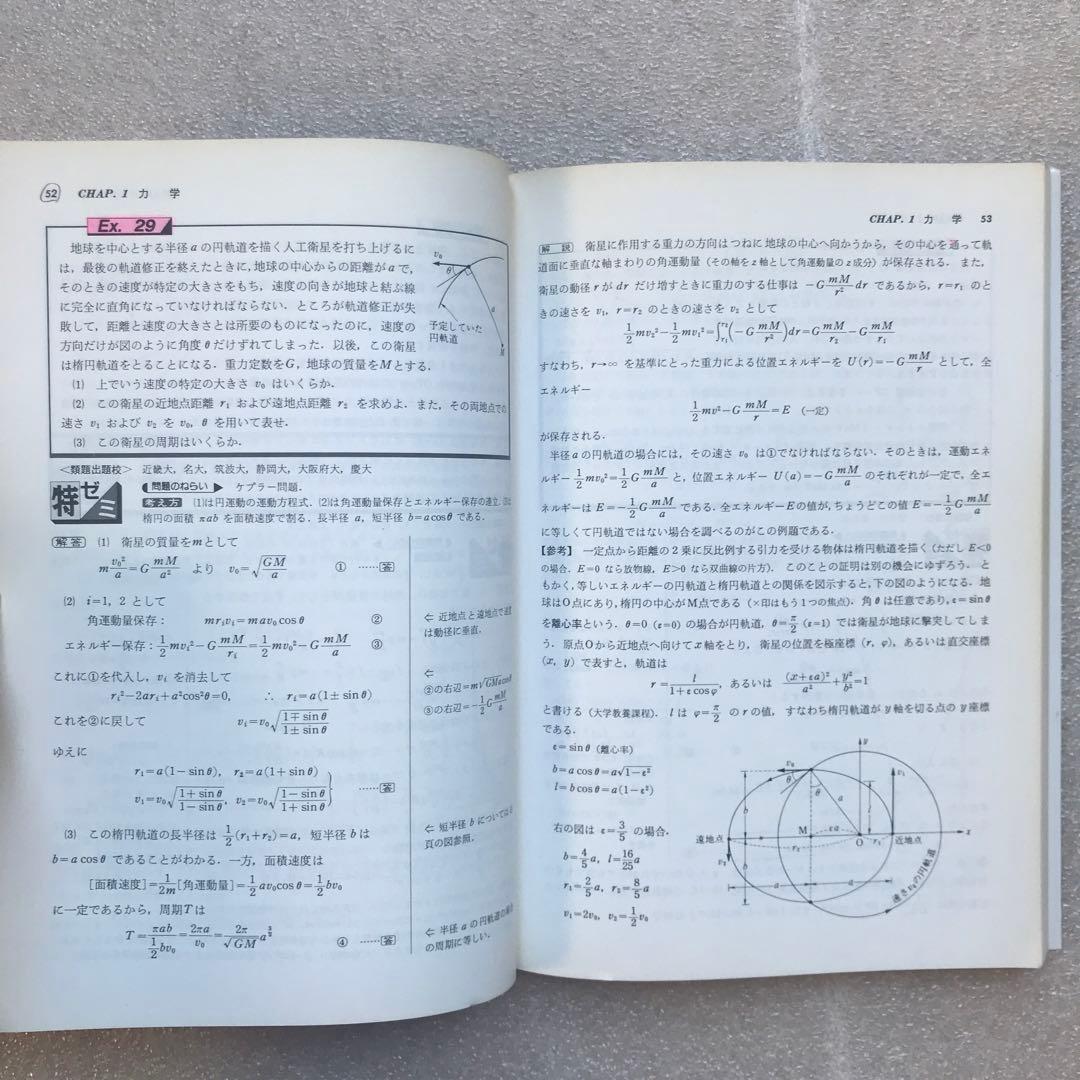 52 CHAP. 1 力 学
Ex. 29
地球を中心とする半径 a の円軌道を描く人工衛星を打ち上げるに
は,最後の軌道修正を終えたときに,地球の中心からの距離が a で,
そのときの速度が特定の大きさをもち,速度の向きが地球と結ぶ線
に完全に直角になっていなければならない.ところが軌道修正が失
敗して,距離と速度の大きさとは所要のものになったのに,速度の
方向だけが図のように角度 θ だけずれてしまった.以後,この衛星
は楕円軌道をとることになる.重力定数を G,地球の質量を M とする.
(1) 上でいう速度の特定の大きさ v₀ はいくらか.
(2) この衛星の近地点距離 r₁ および遠地点距離 r₂ を求めよ.また,その両地点での
速さ v₁ および v₂ を v₀, θ を用いて表せ.
(3) この衛星の周期はいくらか.
v₀
θ
a
M
予定していた
円軌道
<類題出題校> 近畿大,名大,筑波大,静岡大,大阪府大,慶大
特ゼミ
問題のねらい ▶ ケプラー問題.
考え方 (1)は円運動の運動方程式.(2)は角運動量保存とエネルギー保存の連立.(3)は
楕円の面積 πab を面積速度で割る.長半径 a,短半径 b=a cosθ である.
解答 (1) 衛星の質量を m として
m v₀²/a = G mM/a² より v₀=√(GM/a) ① ……答
(2) i=1, 2 として
角運動量保存: mrᵢvᵢ=mav₀cosθ ②
エネルギー保存: 1/2 mvᵢ²−G mM/rᵢ = 1/2 mv₀²−G mM/a ③
これに①を代入し,vᵢ を消去して
rᵢ²−2arᵢ+a²cos²θ=0, ∴ rᵢ=a(1±sinθ)
これを②に戻して vᵢ=v₀√((1∓sinθ)/(1±sinθ))
ゆえに
r₁=a(1−sinθ), r₂=a(1+sinθ)
v₁=v₀√((1+sinθ)/(1−sinθ)), v₂=v₀√((1−sinθ)/(1+sinθ)) ……答
(3) この楕円軌道の長半径は 1/2(r₁+r₂)=a,短半径 b は
b=a cosθ であることがわかる.一方,面積速度は
[面積速度]=1/2m[角運動量]=1/2 av₀cosθ=1/2 bv₀
に一定であるから,周期 T は
T=πab/(1/2 bv₀)=2πa/v₀=2π/√GM a^(3/2) ④ ……答
⇐ 近地点と遠地点で速度
は動径に垂直.
⇐
②の右辺=m√GMa cosθ
③の右辺=−1/2 G mM/a
⇐ 短半径 b については
頁の図参照.
⇐ 半径 a の円軌道の場合
の周期に等しい.
CHAP. 1 力 学 53
解 説 衛星に作用する重力の方向はつねに地球の中心へ向かうから,その中心を通って軌
道面に垂直な軸まわりの角運動量(その軸を z 軸として角運動量の z 成分)が保存される.また,
衛星の動径 r が dr だけ増すときに重力のする仕事は −G mM/r² dr であるから,r=r₁ のと
きの速さを v₁, r=r₂ のときの速さを v₂ として
1/2 mv₂²−1/2 mv₁²=∫r₁r₂(−G mM/r²)dr=G mM/r₂−G mM/r₁
すなわち,r→∞ を基準にとった重力による位置エネルギーを U(r)=−G mM/r として,全
エネルギー
1/2 mv²−G mM/r=E (一定)
が保存される.
半径 a の円軌道の場合には,その速さ v₀ は①でなければならない.そのときは,運動エネ
ルギー 1/2 mv₀²=1/2 G mM/a と,位置エネルギー U(a)=−G mM/a のそれぞれが一定で,全エ
ネルギーは E=−1/2 G mM/a である.全エネルギー E の値が,ちょうどこの値 E=−1/2 G mM/a
に等しくて円軌道ではない場合を調べるのがこの例題である.
【参考】 一定点から距離の2乗に反比例する引力を受ける物体は楕円軌道を描く(ただし E<0
の場合.E=0 なら放物線,E>0 なら双曲線の片方).このことの証明は別の機会にゆずろう.と
もかく,等しいエネルギーの円軌道と楕円軌道との関係を図示すると,下の図のようになる.地
球はO点にあり,楕円の中心がM点である(×印はもう1つの焦点).角 θ は任意であり,ε=sinθ
を離心率という.θ=0 (ε=0) の場合が円軌道,θ=π/2 (ε=1) では衛星が地球に衝突してしま
う.原点Oから近地点へ向けて x 軸をとり,衛星の位置を極座標 (r, φ),あるいは直交座標
(x, y) で表すと,軌道は
r=l/(1+ε cosφ), あるいは (x+εa)²/a²+y²/b²=1
と書ける(大学教養課程).l は φ=π/2 の r の値,すなわち楕円軌道が y 軸を切る点の y 座標
である.
ε=sinθ(離心率)
b=a cosθ=a√(1−ε²)
l=b cosθ=a(1−ε²)
右の図は ε=3/5 の場合.
b=4/5 a, l=16/25 a
r₁=2/5 a, r₂=8/5 a
v₁=2v₀, v₂=1/2 v₀
y
v₀
θ
θ
a
b
l
v₁
遠地点
M
εa
O
r₁
近地点
x
r₂
v₂
b
a
a
速さ v₀ の円軌道